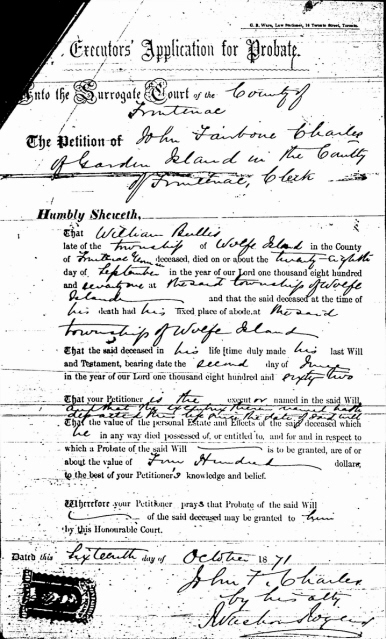 C. B. Ware, Law Stationer, 18 Toronto Street, Toronto.
Executors' Application for Probate.
Into the Surrogate Court of the County of
Frontenac
The Petition of John Fairbone Charles
of Garden Island in the County
of Frontenac, Clerk
Humbly Sheweth,
That William Bullis
late of the Township of Wolfe Island in the County
of Frontenac deceased, died on or about the twenty-eighth
day of September in the year of our Lord one thousand eight hundred
and seventy one at the said township of Wolfe
Island and that the said deceased at the time of
his death had his fixed place of abode, at the said
township of Wolfe Island
That the said deceased in his life time duly made his last Will
and Testament, bearing date the second day of
in the year of our Lord one thousand eight hundred and sixty two
That your Petitioner is the executor named in the said Will
and that the executrix therein named hath
departed this life since the date of said will
That the value of the personal Estate and Effects of the said deceased which
he in any way died possessed of, or entitled to, and for and in respect to
which a Probate of the said Will is to be granted, are of or
about the value of Four Hundred dollars,
to the best of your Petitioner's knowledge and belief.
Wherefore your Petitioner prays that Probate of the said Will
of the said deceased may be granted to him
by this Honourable Court.
Dated this Sixteenth day of October 1871
John F. Charles
by his atty